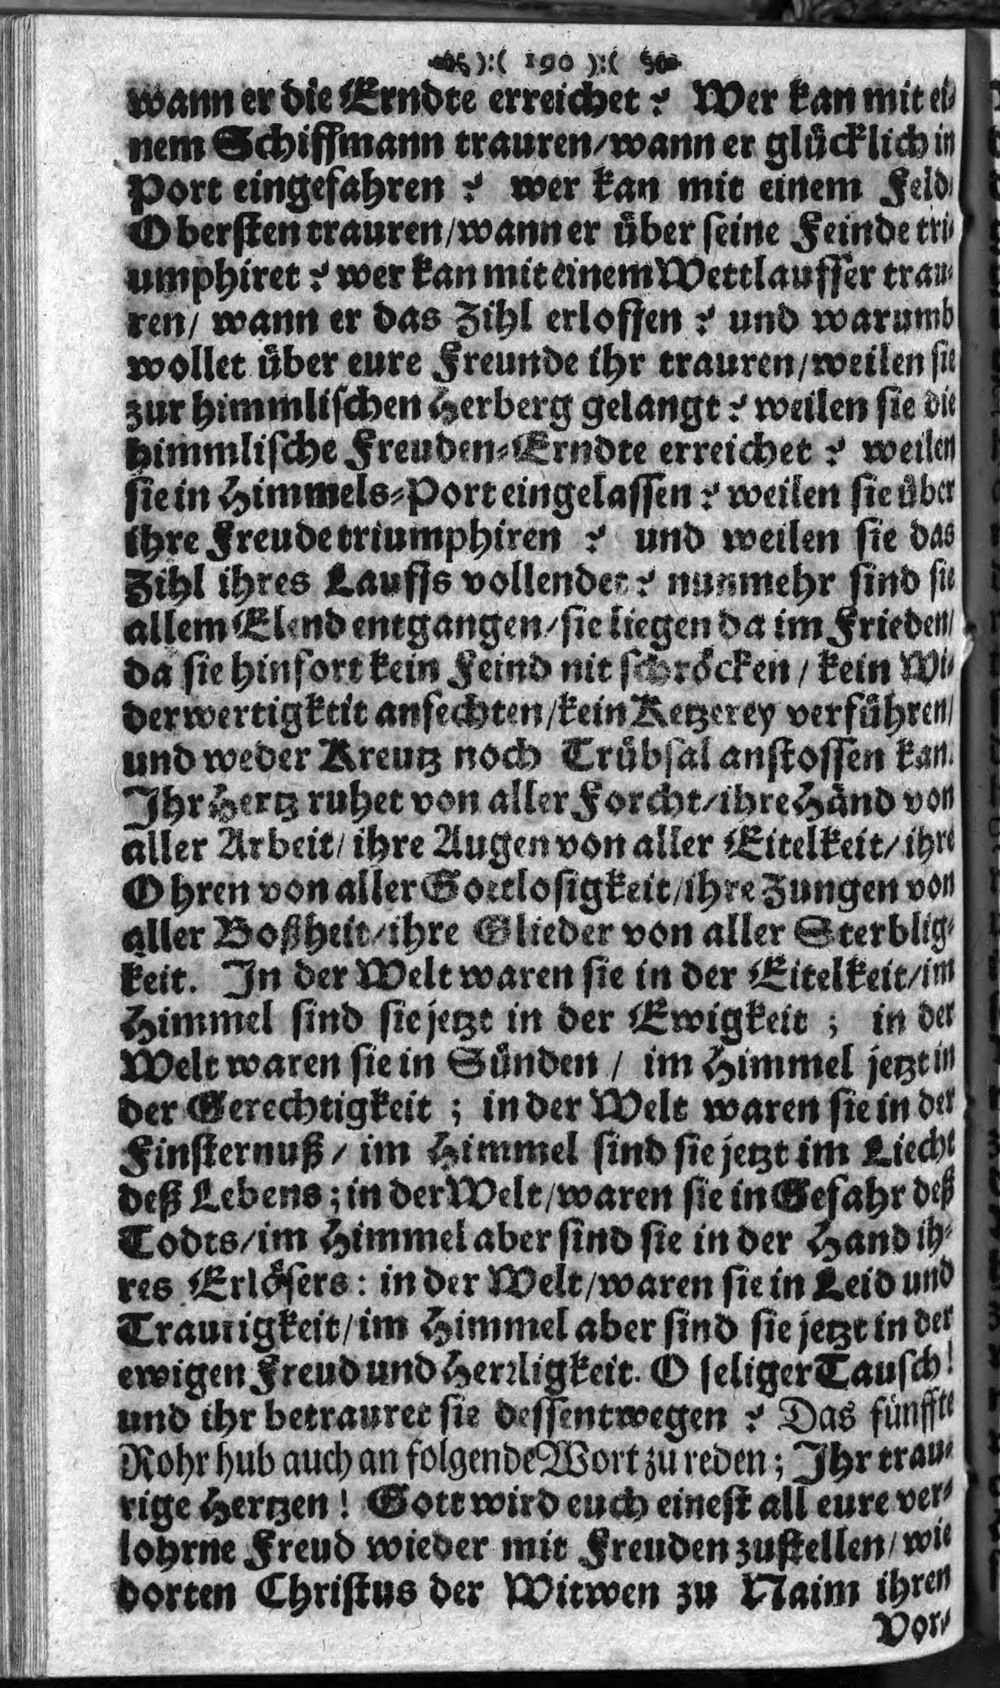 ):( 190 ):(
wann er die Erndte erreichet? Wer kan mit ei-
nem Schiffmann trauren/wann er glücklich in
Port eingefahren? wer kan mit einem Feld-
Obersten trauren/wann er über seine Feinde tri-
umphiret? wer kan mit einem Wettlauffer trau-
ren/ wann er das Zihl erloffen? und warumb
wollet über eure Freunde ihr trauren/weilen sie
zur himmlischen Herberg gelangt? weilen sie die
himmlische Freuden-Erndte erreichet? weilen
sie in Himmels-Port eingelassen? weilen sie über
ihre Freude triumphiren? und weilen sie das
Zihl ihres Lauffs vollendet? nunmehr sind sie
allem Elend entgangen/sie liegen da im Frieden/
da sie hinfort kein Feind nit schröcken/ kein Wi-
derwertigkeit anfechten/kein Ketzerey verführen/
und weder Kreutz noch Trübsal anstossen kan.
Ihr Hertz ruhet von aller Forcht/ihre Händ von
aller Arbeit/ ihre Augen von aller Eitelkeit/ihre
Ohren von aller Gottlosigkeit/ihre Zungen von
aller Boßheit/ihre Glieder von aller Sterblig-
keit. In der Welt waren sie in der Eitelkeit/im
Himmel sind sie jetzt in der Ewigkeit; in der
Welt waren sie in Sünden/ im Himmel jetzt in
der Gerechtigkeit; in der Welt waren sie in der
Finsternuß/ im Himmel sind sie jetzt im Liecht
deß Lebens; in der Welt/waren sie in Gefahr deß
Todts/im Himmel aber sind sie in der Hand ih-
res Erlösers: in der Welt/waren sie in Leid und
Traurigkeit/im Himmel aber sind sie jetzt in der
ewigen Freud und Herrligkeit. O seliger Tausch!
und ihr betrauret sie dessentwegen? Das fünffte
Rohr hub auch an folgende Wort zu reden; Ihr trau-
rige Hertzen! Gott wird euch einest all eure ver-
lohrne Freud wieder mit Freuden zustellen/wie
dorten Christus der Witwen zu Naim ihren
Vor-